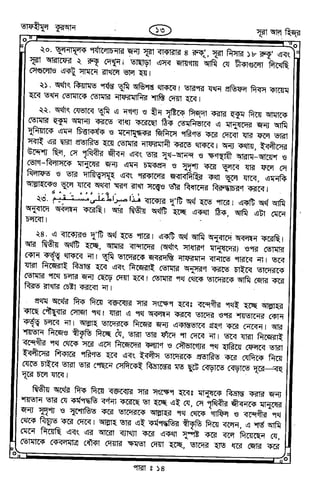 তাফহীমুল কুরআন
১৩
সূরা আল হিজর
২০. তুলনামূলক পর্যালোচনার জন্য সূরা বাকারার ৪ রুকূ', সূরা নিসার ১৮ রুকূ' এবং
সূরা আরাফের ২ রুকূ দেখুন। তাছাড়া এসব জায়গায় আমি যে টীকাগুলো লিখেছি
সেগুলোও একটু সামনে রাখলে ভাল হয়।
২১. অর্থাৎ কিয়ামত পর্যন্ত তুমি অভিশপ্ত থাকবে। তারপর যখন প্রতিফল দিবস কায়েম
হবে তখন তোমাকে তোমার নাফরমানির শাস্তি দেয়া হবে।
২২. অর্থাৎ যেভাবে তুমি এ নগণ্য ও হীন সৃষ্টিকে সিজদা করার হুকুম দিয়ে আমাকে
তোমার হুকুম অমান্য করতে বাধ্য করেছো ঠিক তেমনিভাবে এ মানুষদের জন্য আমি
দুনিয়াকে এমন চিত্তাকর্ষক ও মনোমুগ্ধকর জিনিসে পরিণত করে দেবো যার ফলে তারা
সবাই এর দ্বারা প্রতারিত হয়ে তোমার নাফরমানী করতে থাকবে। অন্য কথায়, ইবলীসের
উদ্দেশ্য ছিল, সে পৃথিবীর জীবন এবং তার সুখ-আনন্দ ও ক্ষণস্থায়ী আরাম-আয়েশ ও
ভোগ-বিলাসকে মানুষের জন্য এমন চমকপ্রদ ও সুদৃশ্য করে তুলবে যার ফলে সে
খিলাফত ও তার দায়িত্বসমূহ এবং পরকালের জবাবদিহির কথা ভুলে যাবে, এমনকি
আল্লাহকেও ভুলে যাবে অথবা স্মরণ রাখা সত্ত্বেও তাঁর বিধানের বিরুদ্ধাচরণ করবে।
২৩. هٰذَا صِرَاطٌ عَلَيَّ مُسْتَقِيْمٌ বাক্যের দু'টি অর্থ হতে পারে। একটি অর্থ আমি
অনুবাদে অবলম্বন করেছি। আর দ্বিতীয় অর্থটি হচ্ছে একথা ঠিক, আমি এটা মেনে
চলবো।
২৪. এ বাক্যেরও দু'টি অর্থ হতে পারে। একটি অর্থ আমি অনুবাদে অবলম্বন করেছি।
আর দ্বিতীয় অর্থটি হচ্ছে, আমার বান্দাদের (অর্থাৎ সাধারণ মানুষদের) ওপর তোমার
কোন কর্তৃত্ব থাকবে না। তুমি তাদেরকে জবরদস্তি নাফরমান বানাতে পারবে না। তবে
যারা নিজেরাই বিভ্রান্ত হবে এবং নিজেরাই তোমার অনুসরণ করতে চাইবে তাদেরকে
তোমার পথে চলার জন্য ছেড়ে দেয়া হবে। তোমার পথ থেকে তাদেরকে আমি জোর করে
বিরত রাখার চেষ্টা করবো না।
প্রথম অর্থের দিক দিয়ে বক্তব্যের সার সংক্ষেপ হবে: বন্দেগীর পথই হচ্ছে আল্লাহর
কাছে পৌঁছুবার সোজা পথ। যারা এ পথ অবলম্বন করবে তাদের ওপর শয়তানের কোন
কর্তৃত্ব চলবে না। আল্লাহ তাদেরকে নিজের জন্য একান্তভাবে গ্রহণ করে নেবেন। আর
শয়তান নিজেও স্বীকৃতি দিচ্ছে যে, তারা তার ফাঁদে পা দেবে না। তবে যারা নিজেরাই
বন্দেগীর পথ থেকে সরে এসে নিজেদের কল্যাণ ও সৌভাগ্যের পথ হারিয়ে ফেলবে তারা
ইবলীসের শিকারে পরিণত হবে এবং ইবলীস তাদেরকে প্রতারিত করে যেদিকে নিয়ে
যেতে চাইবে তারা তার পেছনে সেদিকেই বিভ্রান্তের মত ছুটে বেড়াতে বেড়াতে দূরে—বহু
দূরে চলে যাবে।
দ্বিতীয় অর্থের দিক দিয়ে বক্তব্যের সার সংক্ষেপ হবে: মানুষকে বিভ্রান্ত করার জন্য
শয়তান তার যে কর্মপদ্ধতি বর্ণনা করেছে তা হচ্ছে এই যে, সে পৃথিবীর জীবনকে মানুষের
জন্য সুদৃশ্য ও সুশোভিত করে তাদেরকে আল্লাহর পথ থেকে গাফিল ও বন্দেগীর পথ
থেকে বিচ্যুত করে দেবে। আল্লাহ তার এই কর্মপদ্ধতির স্বীকৃতি দিয়ে বলেন, এ শর্ত আমি
মেনে নিয়েছি এবং এর আরো ব্যাখ্যা করে একথা সুস্পষ্ট করে বলে দিয়েছেন যে,
তোমাকে কেবলমাত্র ধোঁকা দেয়ার ক্ষমতা দেয়া হচ্ছে, তাদের হাত ধরে জোর করে
পারা : ১৪